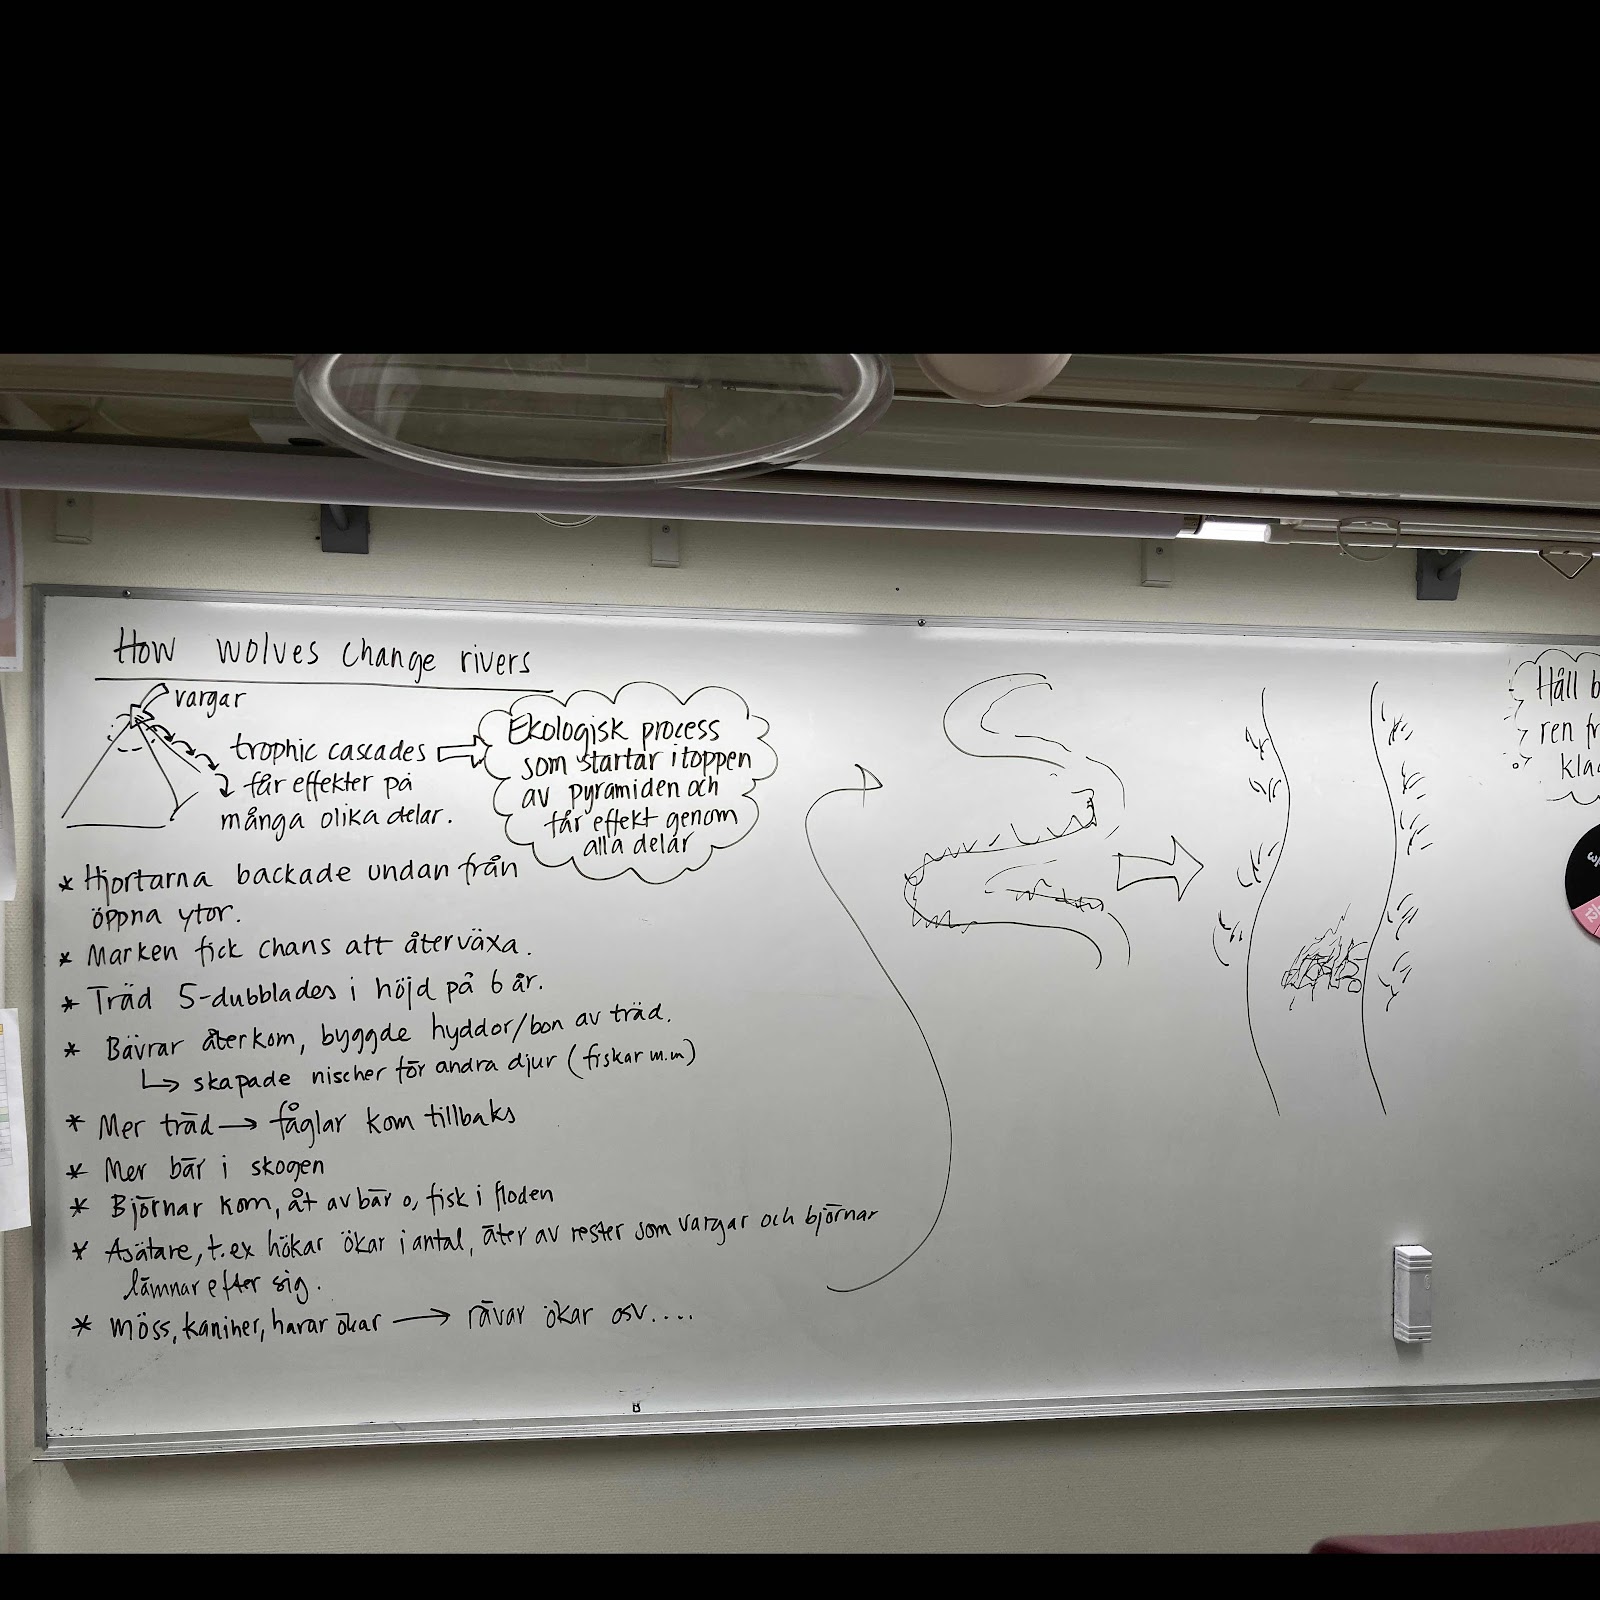 How wolves change rivers
vargar
trophic cascades
får effekter på
många olika delar.
Ekologisk process
som startar i toppen
av pyramiden och
får effekt genom
alla delar
* Hjortarna backade undan från
öppna ytor.
* Marken fick chans att återväxa.
* Träd 5-dubblades i höjd på 6 år.
* Bävrar återkom, byggde hyddor/bon av träd.
↳ skapade nischer för andra djur (fiskar m.m)
* Mer träd → fåglar kom tillbaks
* Mer bär i skogen
* Björnar kom, åt av bär o, fisk i floden
* Asätare, t.ex hökar ökar i antal, äter av rester som vargar och björnar
lämnar efter sig.
* Möss, kaniner, harar ökar → rävar ökar osv....
Håll b
ren fr
kla
12